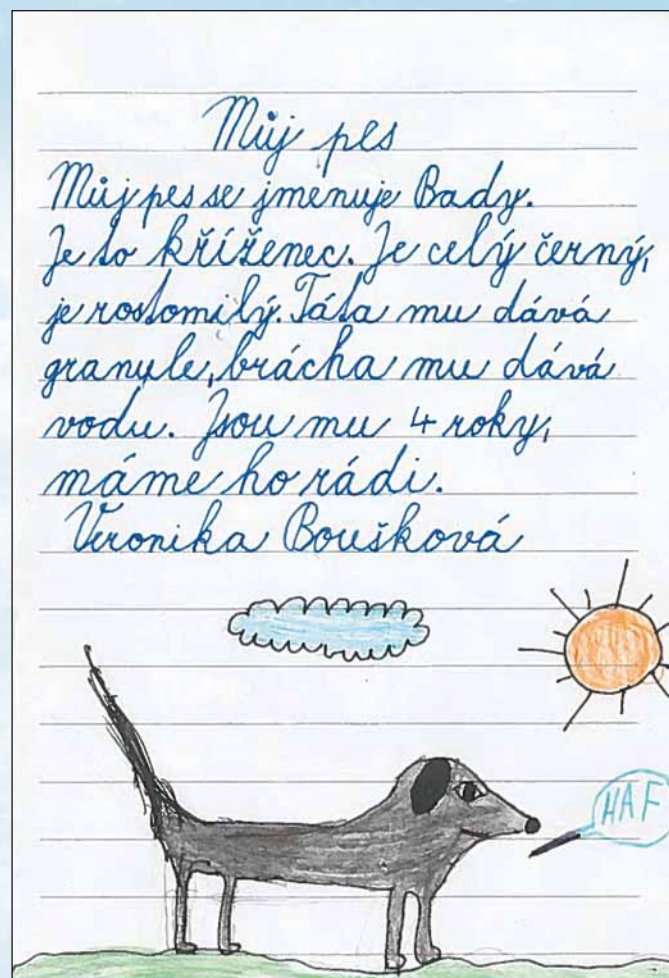 Můj pes
Můj pes se jmenuje Bady.
Je to kříženec. Je celý černý,
je rostomilý. Táta mu dává
granule, brácha mu dává
vodu. Jsou mu 4 roky,
máme ho rádi.
Veronika Boušková
HAF